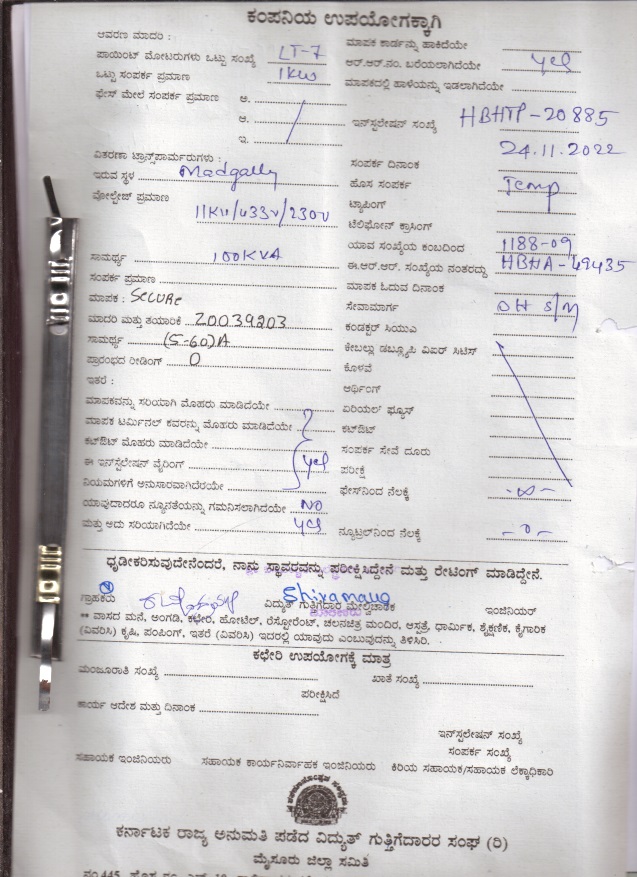 ಕಂಪನಿಯ ಉಪಯೋಗಕ್ಕಾಗಿ
ಆವರಣ ಮಾದರಿ :
ಪಾಯಿಂಟ್ ಮೋಟರುಗಳು ಒಟ್ಟು ಸಂಖ್ಯೆ LT-7
ಒಟ್ಟು ಸಂಪರ್ಕ ಪ್ರಮಾಣ 1KW
ಫೇಸ್ ಮೇಲೆ ಸಂಪರ್ಕ ಪ್ರಮಾಣ ಅ.
ಆ.
ಇ.
ವಿತರಣಾ ಟ್ರಾನ್ಸ್‌ಪಾರ್ಮರುಗಳು :
ಇರುವ ಸ್ಥಳ Madgally
ವೋಲ್ಟೇಜ್ ಪ್ರಮಾಣ
11KV/433V/230V
ಸಾಮರ್ಥ್ಯ 100KVA
ಸಂಪರ್ಕ ಪ್ರಮಾಣ
ಮಾಪಕ : SECURE
ಮಾದರಿ ಮತ್ತು ತಯಾರಿಕೆ 20039203
ಸಾಮರ್ಥ್ಯ (5-60)A
ಪ್ರಾರಂಭದ ರೀಡಿಂಗ್ 0
ಇತರೆ :
ಮಾಪಕವನ್ನು ಸರಿಯಾಗಿ ಮೊಹರು ಮಾಡಿದೆಯೇ
ಮಾಪಕ ಟರ್ಮಿನಲ್ ಕವರನ್ನು ಮೊಹರು ಮಾಡಿದೆಯೇ
ಕಟ್‌ಔಟ್ ಮೊಹರು ಮಾಡಿದೆಯೇ
ಈ ಇನ್‌ಸ್ಟಲೇಷನ್ ವೈರಿಂಗ್ yes
ನಿಯಮಗಳಿಗೆ ಅನುಸಾರವಾಗಿದೆರೆಯೇ
ಯಾವುದಾದರೂ ನ್ಯೂನತೆಯನ್ನು ಗಮನಿಸಲಾಗಿದೆಯೇ NO
ಮತ್ತು ಅದು ಸರಿಯಾಗಿದೆಯೇ yes
ಮಾಪಕ ಕಾರ್ಡನ್ನು ಹಾಕಿದೆಯೇ
ಆರ್.ಆರ್.ನಂ. ಬರೆಯಲಾಗಿದೆಯೇ yes
ಮಾಪಕದಲ್ಲಿ ಹಾಳೆಯನ್ನು ಇಡಲಾಗಿದೆಯೇ
ಇನ್‌ಸ್ಟಲೇಷನ್ ಸಂಖ್ಯೆ HBHTP-20885
24.11.2022
ಸಂಪರ್ಕ ದಿನಾಂಕ
ಹೊಸ ಸಂಪರ್ಕ Temp
ಟ್ಯಾಪಿಂಗ್
ಟೆಲಿಫೋನ್ ಕ್ರಾಸಿಂಗ್
ಯಾವ ಸಂಖ್ಯೆಯ ಕಂಬದಿಂದ 1188-09
ಈ.ಆರ್.ಆರ್. ಸಂಖ್ಯೆಯ ನಂತರದ್ದು HBHA-49435
ಮಾಪಕ ಓದುವ ದಿನಾಂಕ
ಸೇವಾಮಾರ್ಗ OH S/M
ಕಂಡಕ್ಟರ್ ಸಿಯುಎ
ಕೇಬಲ್ಲು ಡಬ್ಲ್ಯೂಪಿ ವಿಐರ್ ಸಿಟಿಸ್
ಕೊಳವೆ
ಆರ್ಥಿಂಗ್
ಏರಿಯಲ್ ಫ್ಯೂಸ್
ಕಟ್‌ಔಟ್
ಸಂಪರ್ಕ ಸೇವೆ ದೂರು
ಪರೀಕ್ಷೆ
ಫೇಸ್‌ನಿಂದ ನೆಲಕ್ಕೆ -∞-
ನ್ಯೂಟ್ರಲ್‌ನಿಂದ ನೆಲಕ್ಕೆ -0-
ಧೃಡೀಕರಿಸುವುದೇನೆಂದರೆ, ನಾನು ಸ್ಥಾವರವನ್ನು ಪರೀಕ್ಷಿಸಿದ್ದೇನೆ ಮತ್ತು ರೇಟಿಂಗ್ ಮಾಡಿದ್ದೇನೆ.
ಗ್ರಾಹಕರು ವಿದ್ಯುತ್ ಗುತ್ತಿಗೆದಾರ ಮೇಲ್ವಿಚಾರಕ ಇಂಜಿನಿಯರ್
** ವಾಸದ ಮನೆ, ಅಂಗಡಿ, ಕಛೇರಿ, ಹೋಟೆಲ್, ರೆಸ್ಟೋರೆಂಟ್, ಚಲನಚಿತ್ರ ಮಂದಿರ, ಆಸ್ಪತ್ರೆ, ಧಾರ್ಮಿಕ, ಶೈಕ್ಷಣಿಕ, ಕೈಗಾರಿಕ
(ವಿವರಿಸಿ) ಕೃಷಿ, ಪಂಪಿಂಗ್, ಇತರೆ (ವಿವರಿಸಿ) ಇದರಲ್ಲಿ ಯಾವುದು ಎಂಬುವುದನ್ನು ತಿಳಿಸಿರಿ.
ಕಛೇರಿ ಉಪಯೋಗಕ್ಕೆ ಮಾತ್ರ
ಮಂಜೂರಾತಿ ಸಂಖ್ಯೆ ಖಾತೆ ಸಂಖ್ಯೆ
ಪರೀಕ್ಷಿಸಿದೆ
ಕಾರ್ಯ ಆದೇಶ ಮತ್ತು ದಿನಾಂಕ
ಇನ್‌ಸ್ಟಲೇಷನ್ ಸಂಖ್ಯೆ
ಸಂಪರ್ಕ ಸಂಖ್ಯೆ
ಸಹಾಯಕ ಇಂಜಿನಿಯರು ಸಹಾಯಕ ಕಾರ್ಯನಿರ್ವಾಹಕ ಇಂಜಿನಿಯರು ಕಿರಿಯ ಸಹಾಯಕ/ಸಹಾಯಕ ಲೆಕ್ಕಾಧಿಕಾರಿ
ಕರ್ನಾಟಕ ರಾಜ್ಯ ಅನುಮತಿ ಪಡೆದ ವಿದ್ಯುತ್ ಗುತ್ತಿಗೆದಾರರ ಸಂಘ (ರಿ)
ಮೈಸೂರು ಜಿಲ್ಲಾ ಸಮಿತಿ